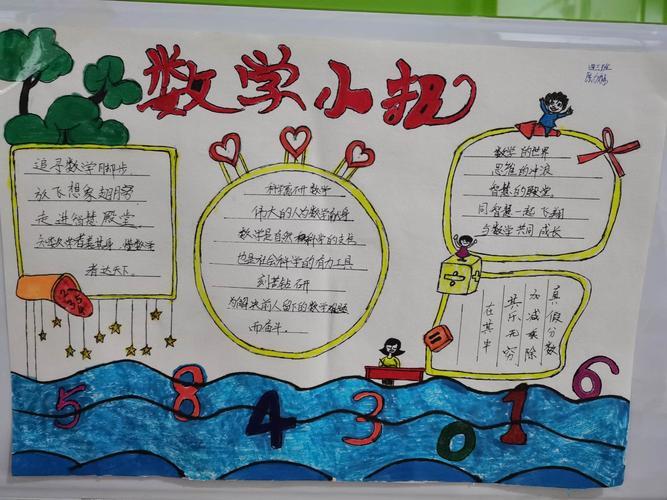 数学小报
四三班
追寻数学脚步
放飞想象翅膀
走进智慧殿堂
者达天下
科学研数学
伟大的人为数学献身
数学是自然科学的支柱
也是社会科学的有力工具
刻苦钻研
为解决前人留下的数学难题
而奋斗
数学的世界
思维的冲浪
智慧的殿堂
同智慧一起飞翔
与数学共同成长
真假分数
加减乘除
其乐无穷
在其中
2
3
5
5 8 4 3 0 1 6